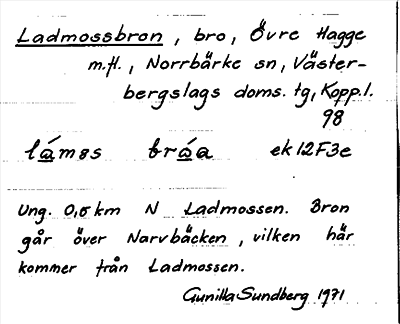 Ladmossbron, bro, Övre Hagge
m.fl., Norrbärke sn, Väster-
bergslags doms. tg, Kopp. l.
98
lámẹs brá̱a ek12F3e
Ung. 0,5 km N Ladmossen. Bron
går över Narvbäcken, vilken här
kommer från Ladmossen.
Gunilla Sundberg 1971